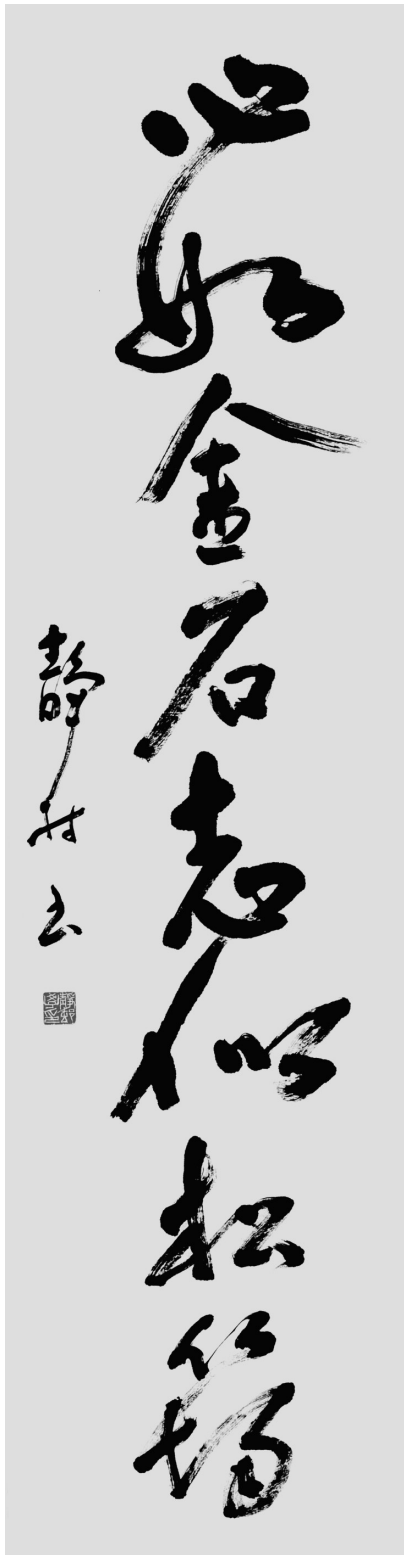 心如金石志似松筠
靜村書